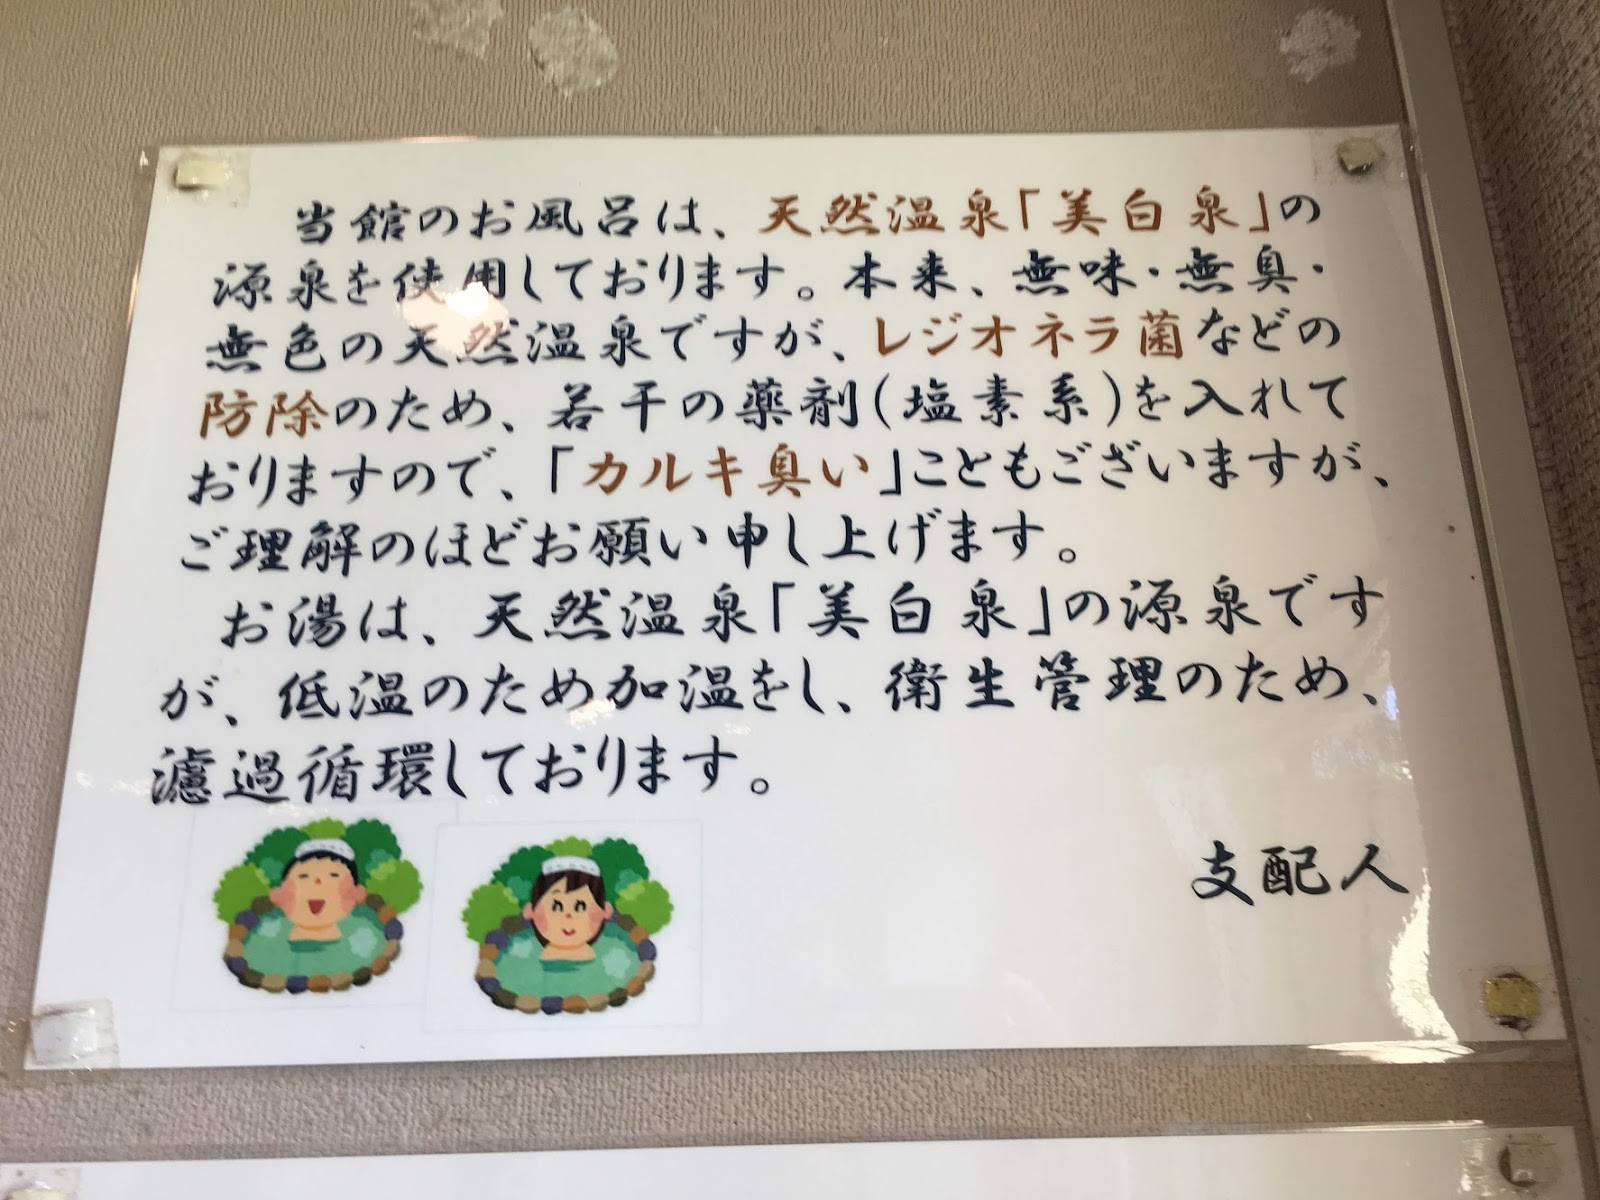 当館のお風呂は、天然温泉「美白泉」の
源泉を使用しております。本来、無味・無臭・
無色の天然温泉ですが、レジオネラ菌などの
防除のため、若干の薬剤(塩素系)を入れて
おりますので、「カルキ臭い」こともございますが、
ご理解のほどお願い申し上げます。
お湯は、天然温泉「美白泉」の源泉です
が、低温のため加温をし、衛生管理のため、
濾過循環しております。
支配人